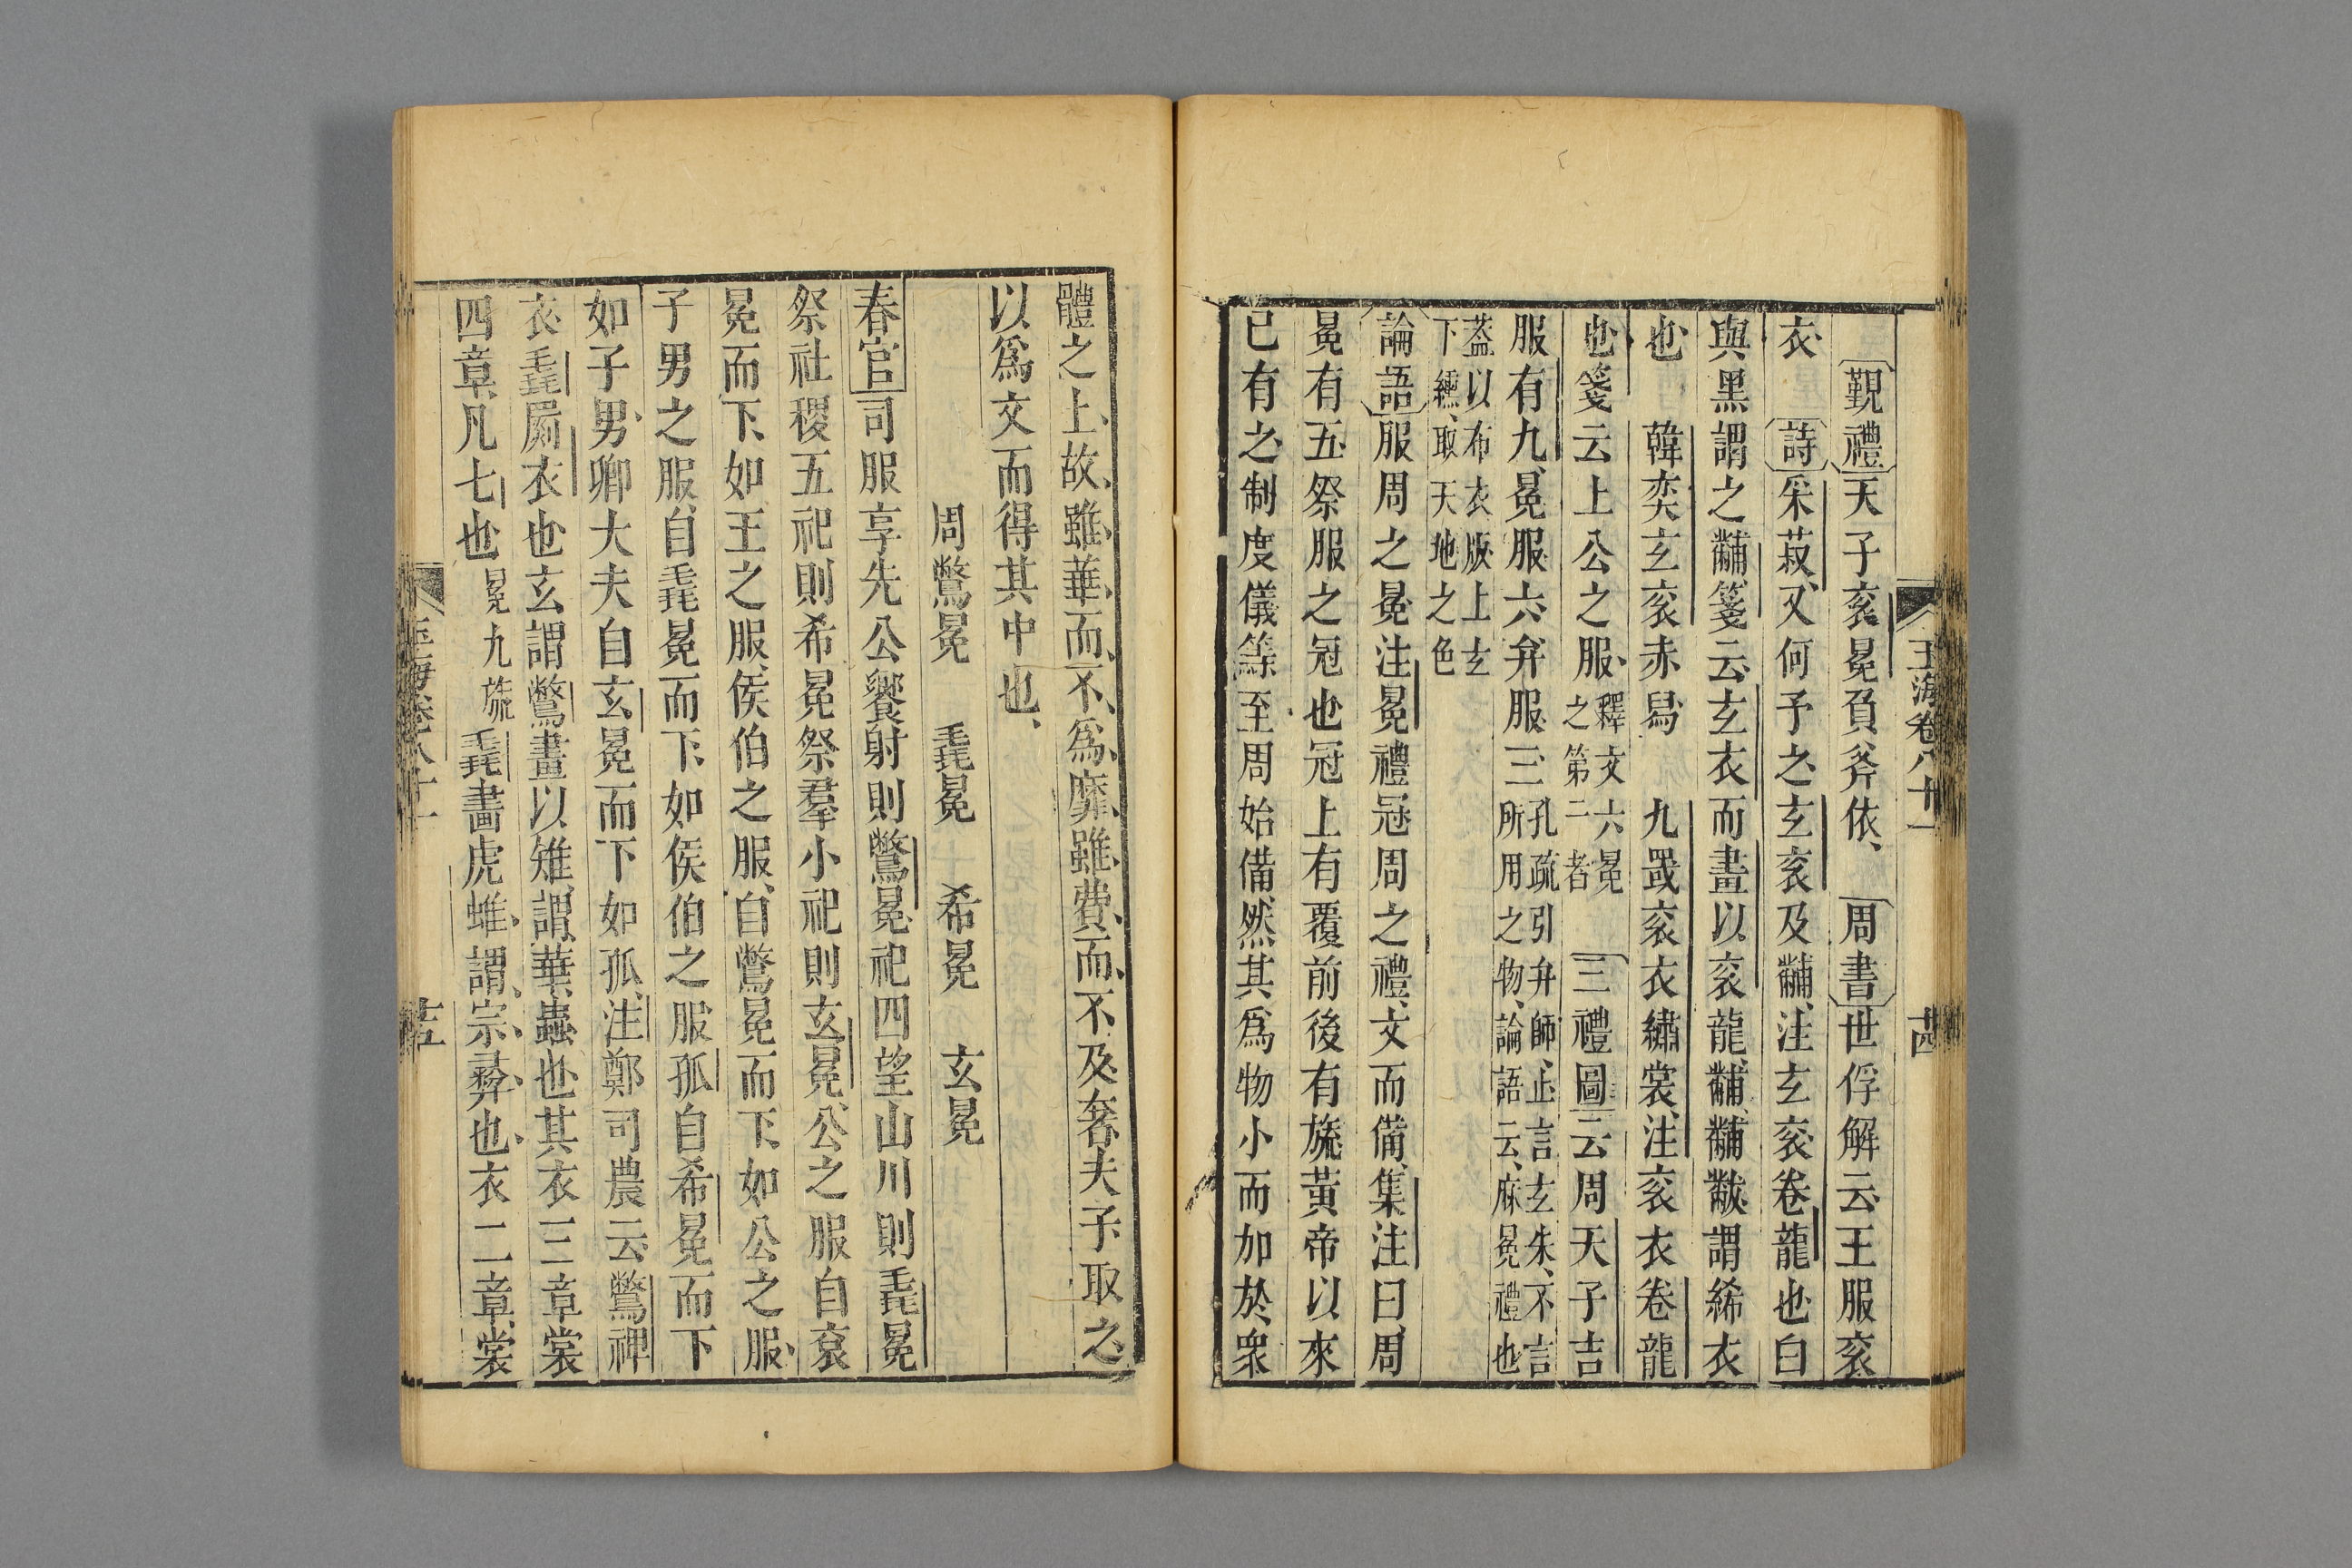 玉海卷八十一 十四
覲禮天子衮冕負斧依周書世俘解云王服衮
衣 詩采菽又何予之玄衮及黼注玄衮卷龍也白
與黑謂之黼箋云玄衣而畫以衮龍黼黼黻謂絺衣
也 韓奕玄衮赤舄 九罭衮衣繡裳注衮衣卷龍
也箋云上公之服釋文六冕之第二者 三禮圖云周天子吉
服有九冕服六弁服三孔疏引弁師止言玄朱不言所用之物論語云麻冕禮也
蓋以布衣版上玄下纁取天地之色
論語服周之冕注冕禮冠周之禮文而備集注曰周
冕有五祭服之冠也冠上有覆前後有旒黃帝以來
已有之制度儀等至周始備然其爲物小而加於衆
體之上故雖華而不爲靡雖費而不及奢夫子取之
以爲文而得其中也
周鷩冕 毳冕 希冕 玄冕
春官司服享先公饗射則鷩冕祀四望山川則毳冕
祭社稷五祀則希冕祭羣小祀則玄冕公之服自袞
冕而下如王之服侯伯之服自鷩冕而下如公之服
子男之服自毳冕而下如侯伯之服孤自希冕而下
如子男卿大夫自玄冕而下如孤注鄭司農云鷩裨
衣毳罽衣也玄謂鷩畫以雉謂華蟲也其衣三章裳
四章凡七也冕九旒毳畫虎蜼謂宗彞也衣二章裳
玉海卷八十一 十五